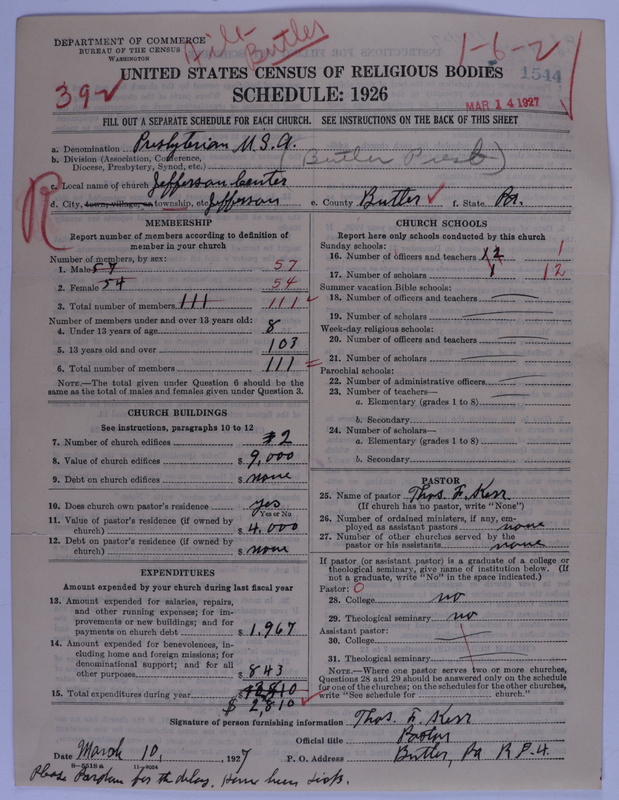 DEPARTMENT OF COMMERCE
BUREAU OF THE CENSUS
WASHINGTON
Butler
1-6-2
1544
UNITED STATES CENSUS OF RELIGIOUS BODIES
SCHEDULE: 1926
39
MAR 14 1927
FILL OUT A SEPARATE SCHEDULE FOR EACH CHURCH. SEE INSTRUCTIONS ON THE BACK OF THIS SHEET
a. Denomination Presbyterian U.S.A.
b. Division (Association, Conference, Diocese, Presbytery, Synod, etc.) (Butler Presb)
c. Local name of church Jefferson Center
d. City, town, village, or township, etc. Jefferson e. County Butler f. State Pa.
R
MEMBERSHIP
Report number of members according to definition of
member in your church
Number of members, by sex:
1. Male 57 57
2. Female 54 54
3. Total number of members 111 111
Number of members under and over 13 years old:
4. Under 13 years of age 8
5. 13 years old and over 103
6. Total number of members 111
NOTE.—The total given under Question 6 should be the
same as the total of males and females given under Question 3.
CHURCH BUILDINGS
See instructions, paragraphs 10 to 12
7. Number of church edifices 2
8. Value of church edifices $ 9,000
9. Debt on church edifices $ none
10. Does church own pastor's residence yes
Yes or No
11. Value of pastor's residence (if owned by
church) $ 4,000
12. Debt on pastor's residence (if owned by
church) $ none
EXPENDITURES
Amount expended by your church during last fiscal year
13. Amount expended for salaries, repairs,
and other running expenses; for im-
provements or new building; and for
payments on church debt $ 1,967
14. Amount expended for benevolences, in-
cluding home and foreign missions; for
denominational support; and for all
other purposes $ 843
15. Total expenditures during year $
$ 2,810
CHURCH SCHOOLS
Report here only schools conducted by this church
Sunday schools:
16. Number of officers and teachers 12 1
17. Number of scholars 1 12
Summer vacation Bible schools:
18. Number of officers and teachers
19. Number of scholars
Week-day religious schools:
20. Number of officers and teachers
21. Number of scholars
Parochial schools:
22. Number of administrative officers
23. Number of teachers—
a. Elementary (grades 1 to 8)
b. Secondary
24. Number of scholars—
a. Elementary (grades 1 to 8)
b. Secondary
PASTOR
25. Name of pastor Thos. F. Kerr
(If church has no pastor, write "None")
26. Number of ordained ministers, if any, em-
ployed as assistant pastors none
27. Number of other churches served by the
pastor or his assistants none
If pastor (or assistant pastor) is a graduate of a college or
theological seminary, give name of institution below. (If
not a graduate, write "No" in the space indicated.)
Pastor: O
28. College no
29. Theological seminary no
Assistant pastor:
30. College
31. Theological seminary
NOTE.—Where one pastor serves two or more churches,
Questions 28 and 29 should be answered only on the schedule
for one of the churches; on the schedules for the other churches,
write "See schedule for church."
Signature of person furnishing information Thos. F. Kerr
Official title Pastor
Date March 10, 1927 P. O. Address Butler, Pa R.D.4.
8-5518a 11-9024
Please Pardon for the delay. Have been sick.